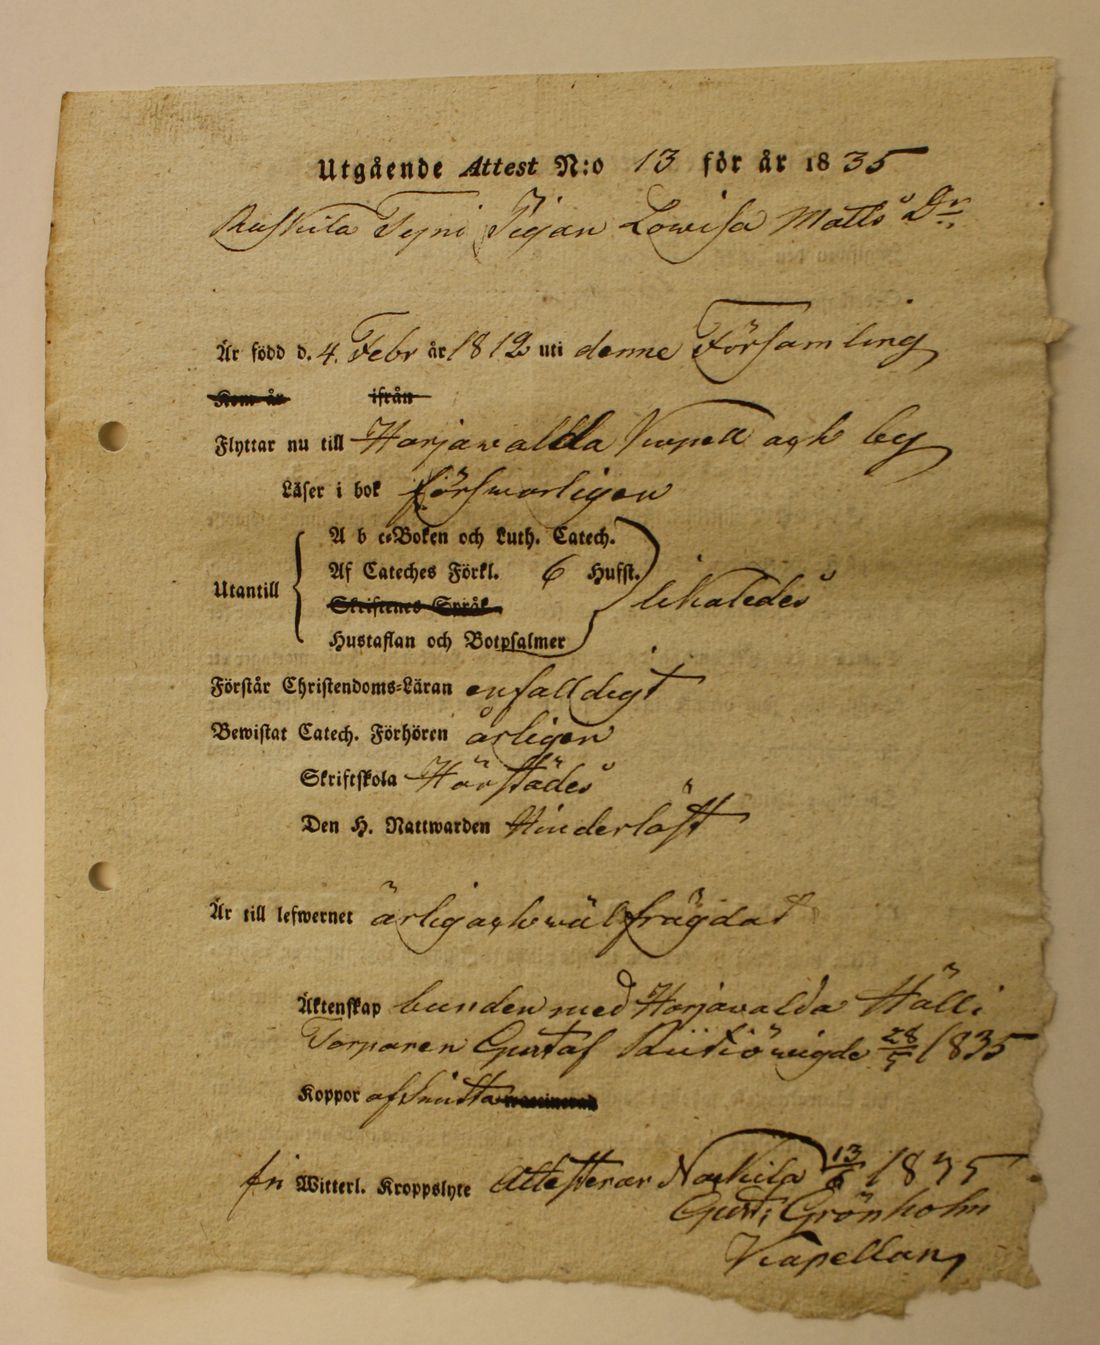 Utgående Attest N:o 13 för år 1835
Raskila Tyni Pigan Lowisa Matts Dr
Är född d. 4. Febr år 1812 uti denne Församling
Kom år ifrån
Flyttar nu till Harjawalda Capell och by
Läser i bok förswarligen
A b c=Boken och Luth. Catech.
Af Cateches Förkl. 6 Hufst.
Utantill likaledes
Skriftenes Språk
Hustaflan och Botpsalmer
Förstår Christendoms=Läran enfalldigt
Bewistat Catech. Förhören årligen
Skriftskola Härstädes
Den H. Nattwarden Hinderlöst
Är till lefwernet ärlig och wäl frägdat
Äktenskap bunden med Harjawalda Hälli
Torparen Gustaf wigde 28/5 1835
Koppor afslutta vaccinerad
fri Witterl. Kroppslyte Attesterar Nackila 13/6 1835
Gust: Grönholm
Capellan